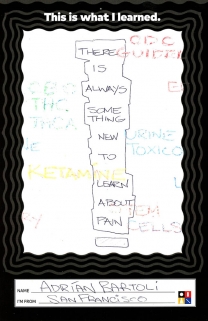 This is what I learned.
THERE
IS
ALWAYS
SOME
THING
NEW
TO
LEARN
ABOUT
PAIN
CDC
CBC
THC
THCA
URINE
TOXICO
KETAMINE
STEM
CELLS
NAME ADRIAN BARTOLI
I'M FROM SAN FRANCISCO